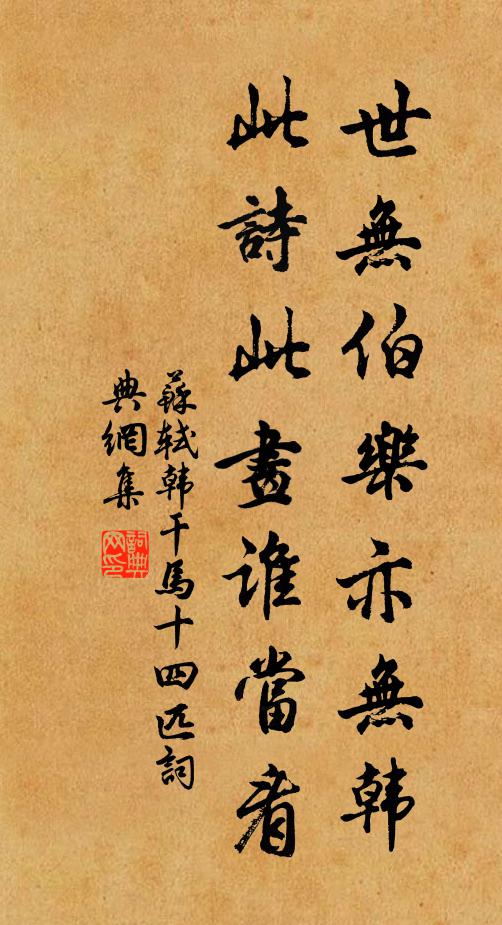 世無伯樂亦無韓
此詩此畫誰當看
蘇軾韓干馬十四匹詞
典網集
詞典網印